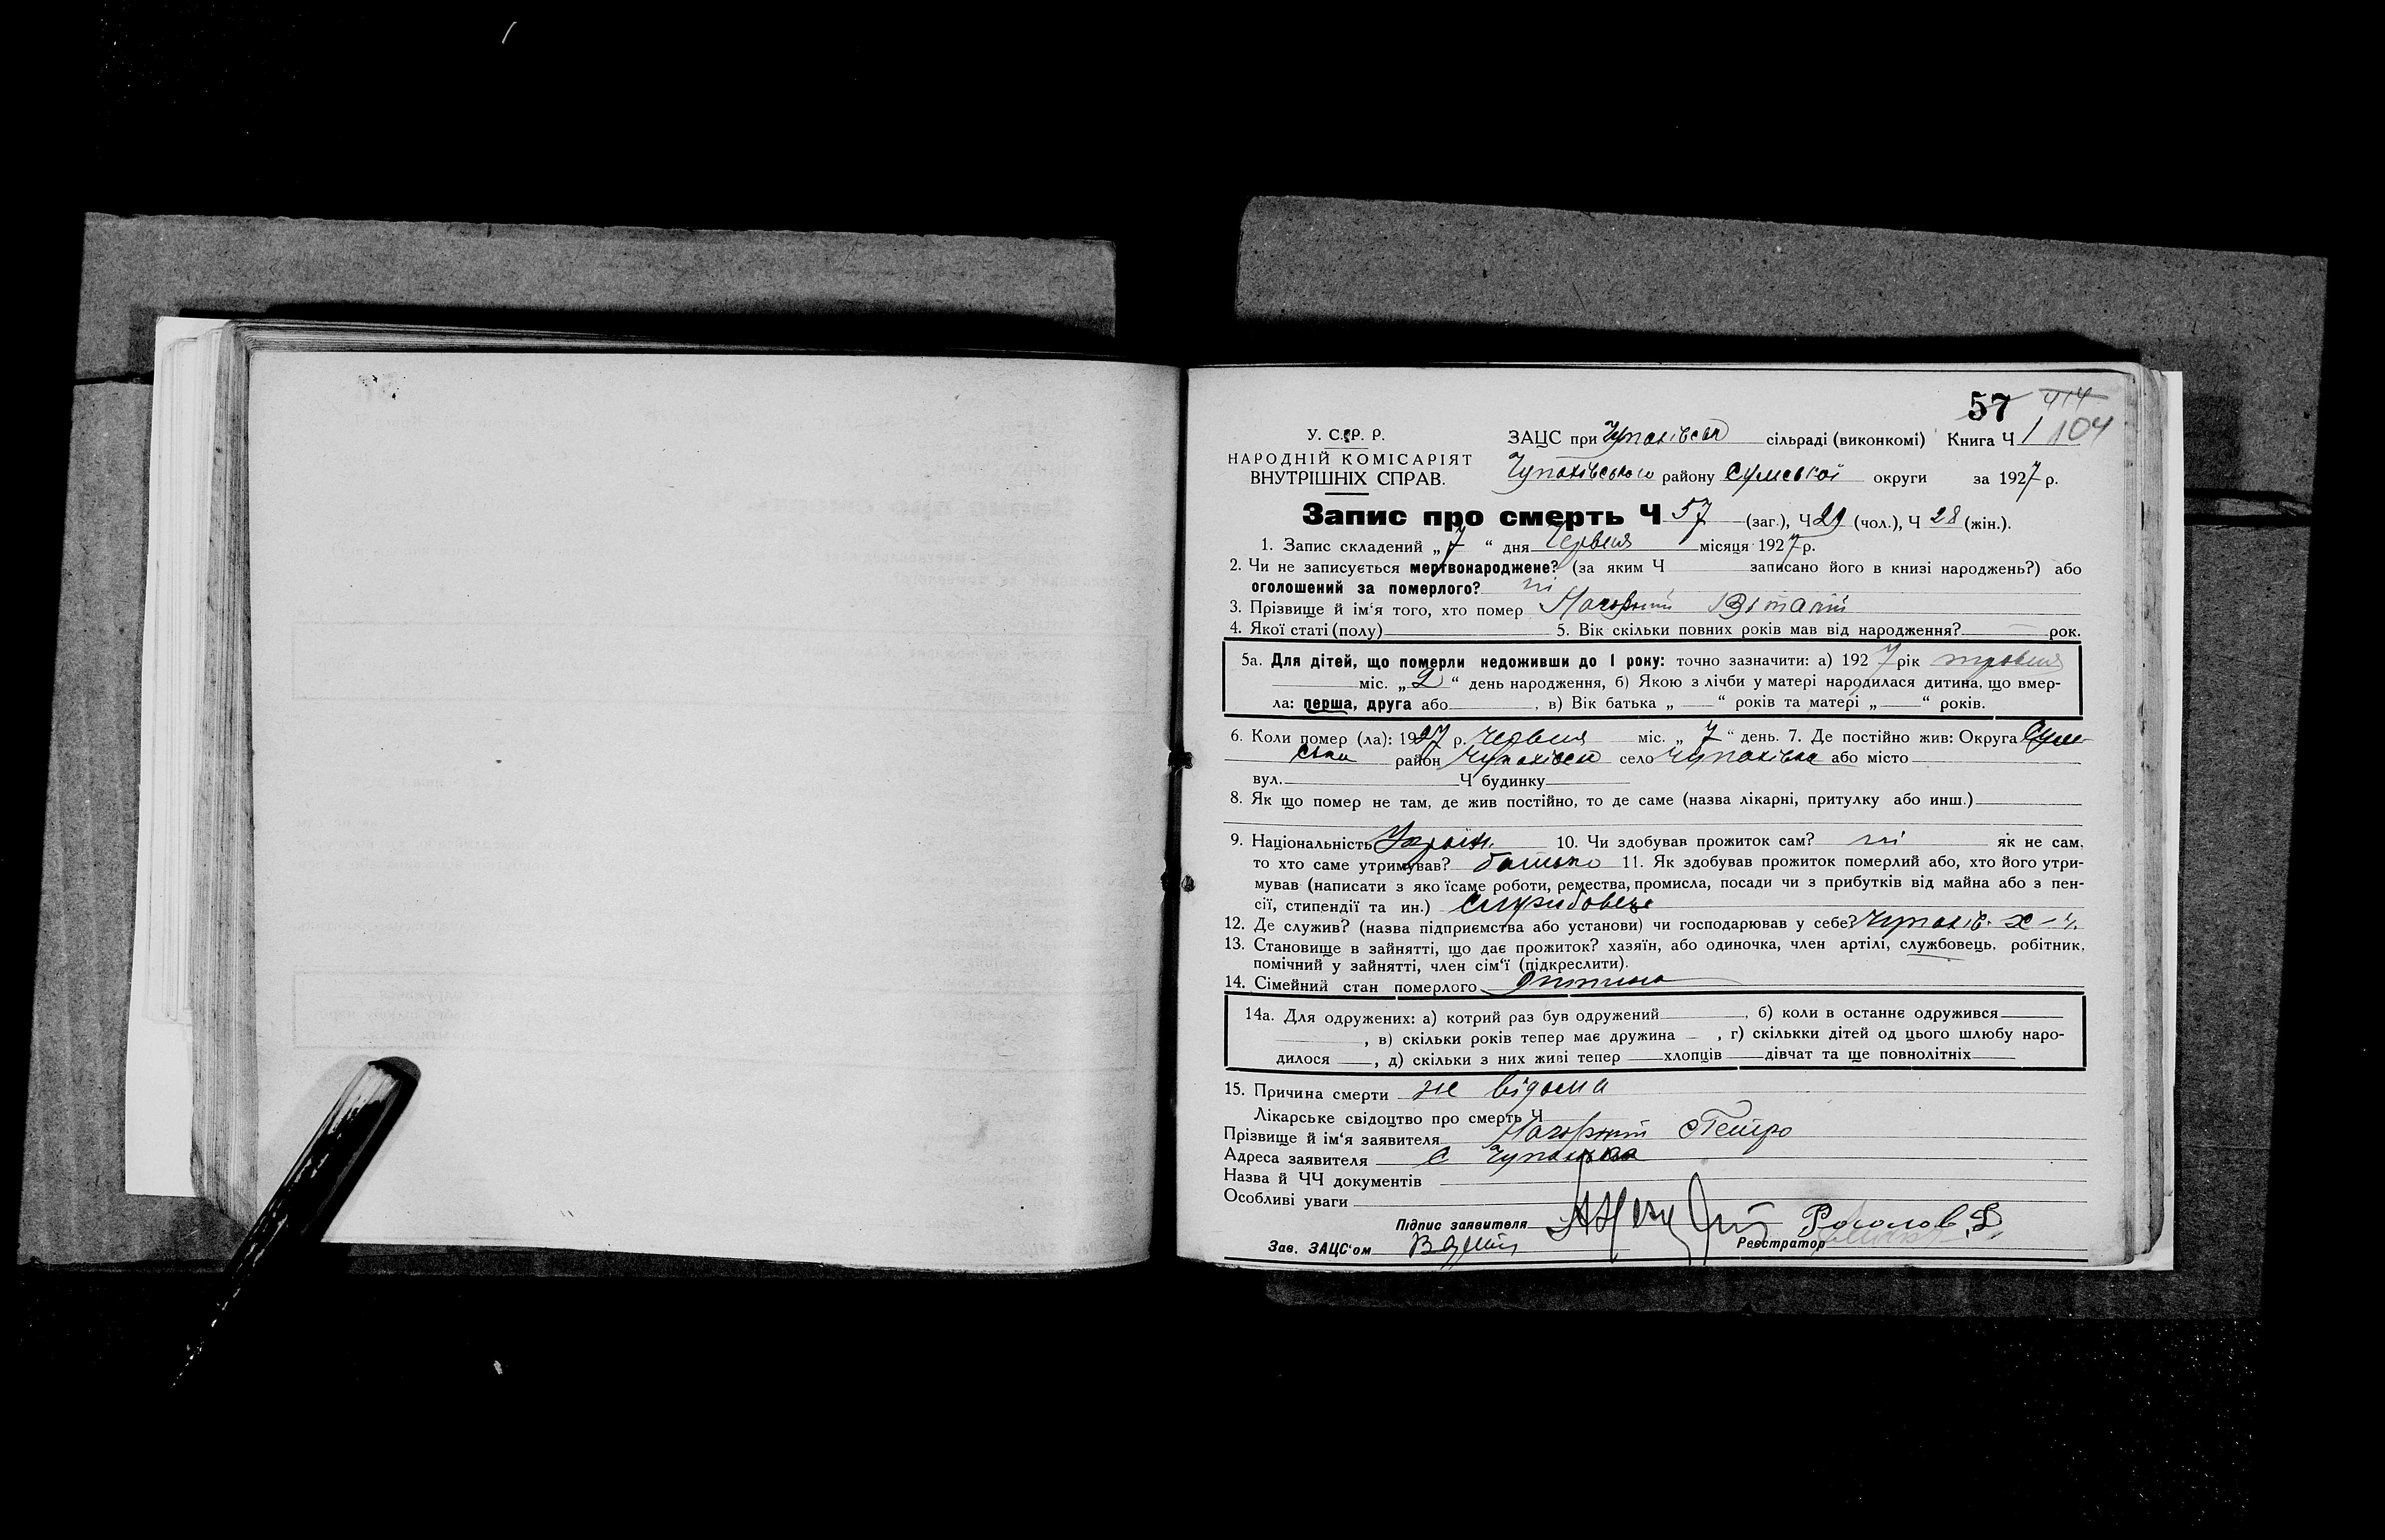 57 414
У. С. Р. Р. ЗАЦС при Чупахівській сільраді (виконкомі) Книга Ч 1 104
НАРОДНІЙ КОМІСАРІЯТ
ВНУТРІШНІХ СПРАВ. Чупахівського району Сумської округи за 1927 р.
Запис про смерть Ч 57 (заг.), Ч 29 (чол.), Ч 28 (жін.).
1. Запис складений „ 7 “ дня Червня місяця 1927 р.
2. Чи не записується мертвонароджене? (за яким Ч записано його в книзі народжень?) або
оголошений за померлого? ні
3. Прізвище й ім‘я того, хто помер Нагорний Віталій
4. Якої статі (полу) 5. Вік скільки повних років мав від народження? — рок.
5а. Для дітей, що померли недоживши до 1 року: точно зазначити: а) 1927 рік травня
міс. „ 2 “ день народження, б) Якою з лічби у матері народилася дитина, що вмер-
ла: перша, друга або , в) Вік батька „ — “ років та матері „ — “ років.
6. Коли помер (ла): 1927 р. червня міс. „ 7 “ день. 7. Де постійно жив: Округа Сум-
ська район Чупахівськ село Чупахівка або місто
вул. Ч будинку
8. Як що помер не там, де жив постійно, то де саме (назва лікарні, притулку або инш.)
9. Національність Україн. 10. Чи здобував прожиток сам? ні як не сам,
то хто саме утримував? батько 11. Як здобував прожиток померлий або, хто його утри-
мував (написати з яко їсаме роботи, ремества, промисла, посади чи з прибутків від майна або з пен-
сії, стипендії та ин.) службовець
12. Де служив? (назва підприємства або установи) чи господарював у себе? Чупахів.
13. Становище в зайнятті, що дає прожиток? хазяїн, або одиночка, член артілі, службовець, робітник,
помічний у зайнятті, член сім‘ї (підкреслити).
14. Сімейний стан померлого дитина
14а. Для одружених: а) котрий раз був одружений , б) коли в останнє одружився
, в) скільки років тепер має дружина — , г) скількки дітей од цього шлюбу наро-
дилося , д) скільки з них живі тепер хлопців дівчат та ще повнолітніх
15. Причина смерти не відома
Лікарське свідоцтво про смерть Ч
Прізвище й ім‘я заявителя Нагорний Петро
Адреса заявителя с Чупахівка
Назва й ЧЧ документів
Особливі уваги
Підпис заявителя
Зав. ЗАЦС‘ом Реєстратор